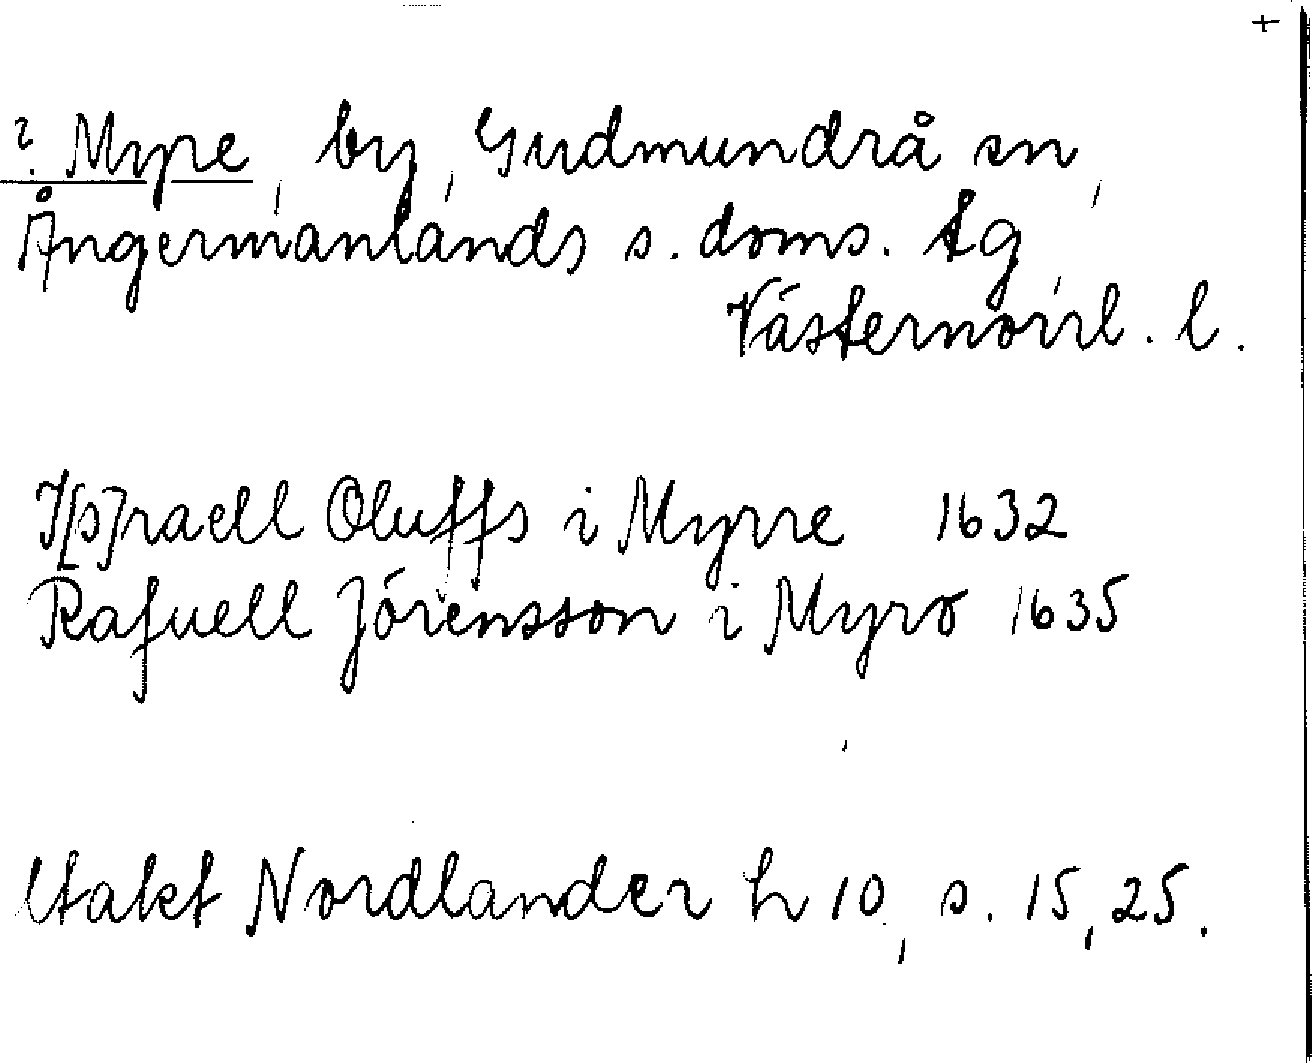 +
? Myre, by, Gudmundrå sn,
Ångermanlands s. doms. tg,
Västernorrl. l.
I[s]raell Oluffs i Myrre 1632
Rafuell Jörensson i Myro 1635
Utakt Nordlander h 10, s. 15, 25.